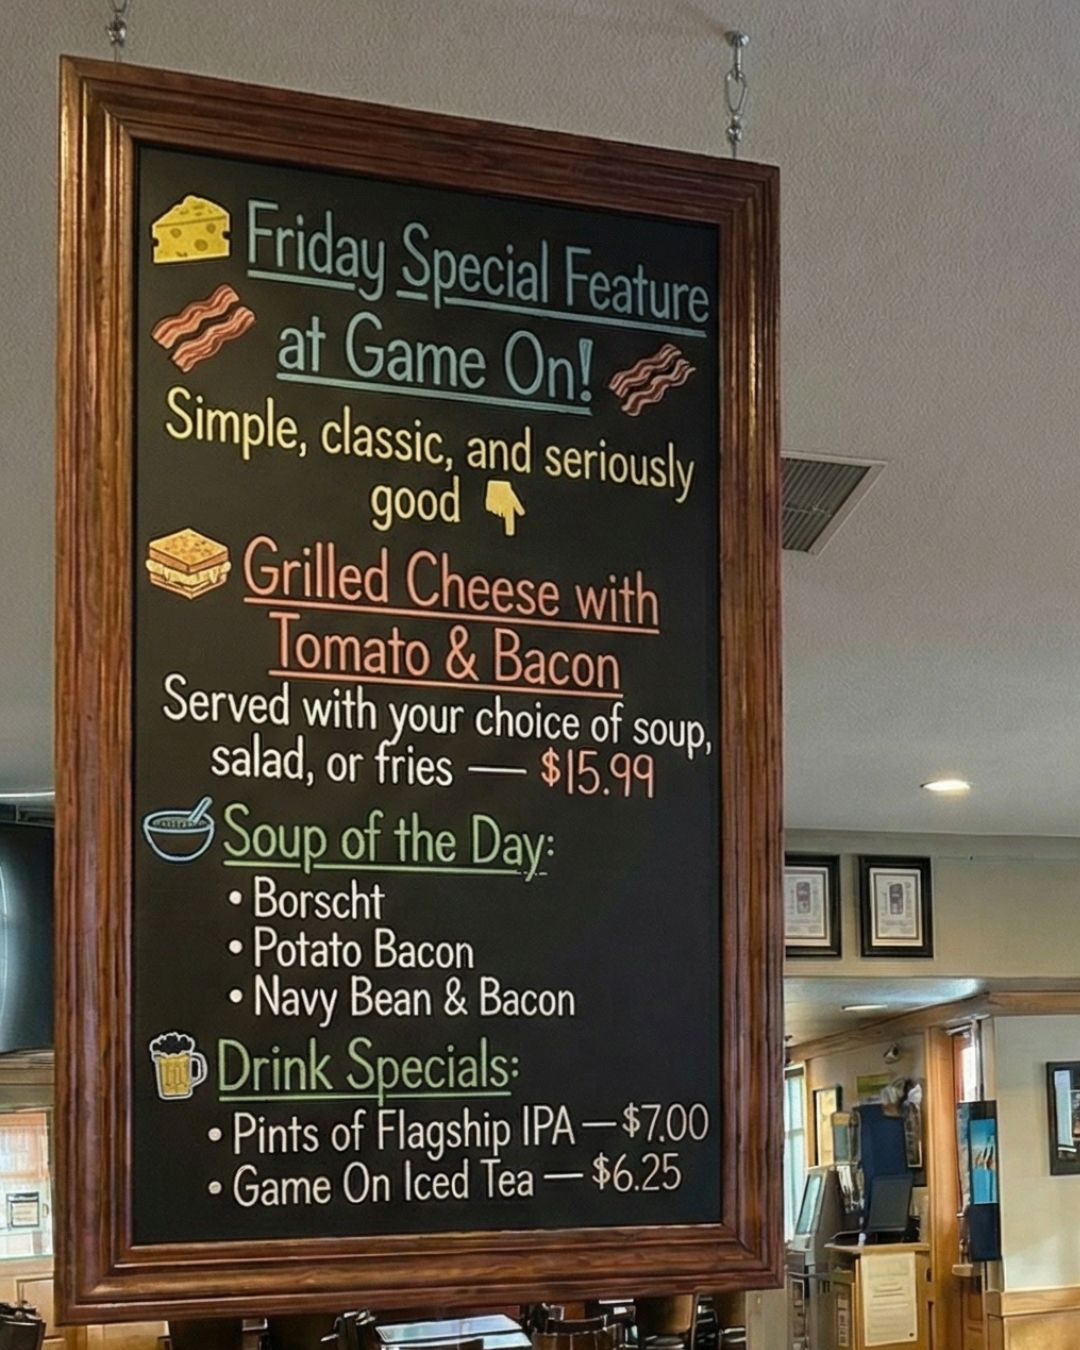 Friday Special Feature
at Game On!
Simple, classic, and seriously
good
Grilled Cheese with
Tomato & Bacon
Served with your choice of soup,
salad, or fries — $15.99
Soup of the Day:
• Borscht
• Potato Bacon
• Navy Bean & Bacon
Drink Specials:
• Pints of Flagship IPA — $7.00
• Game On Iced Tea — $6.25